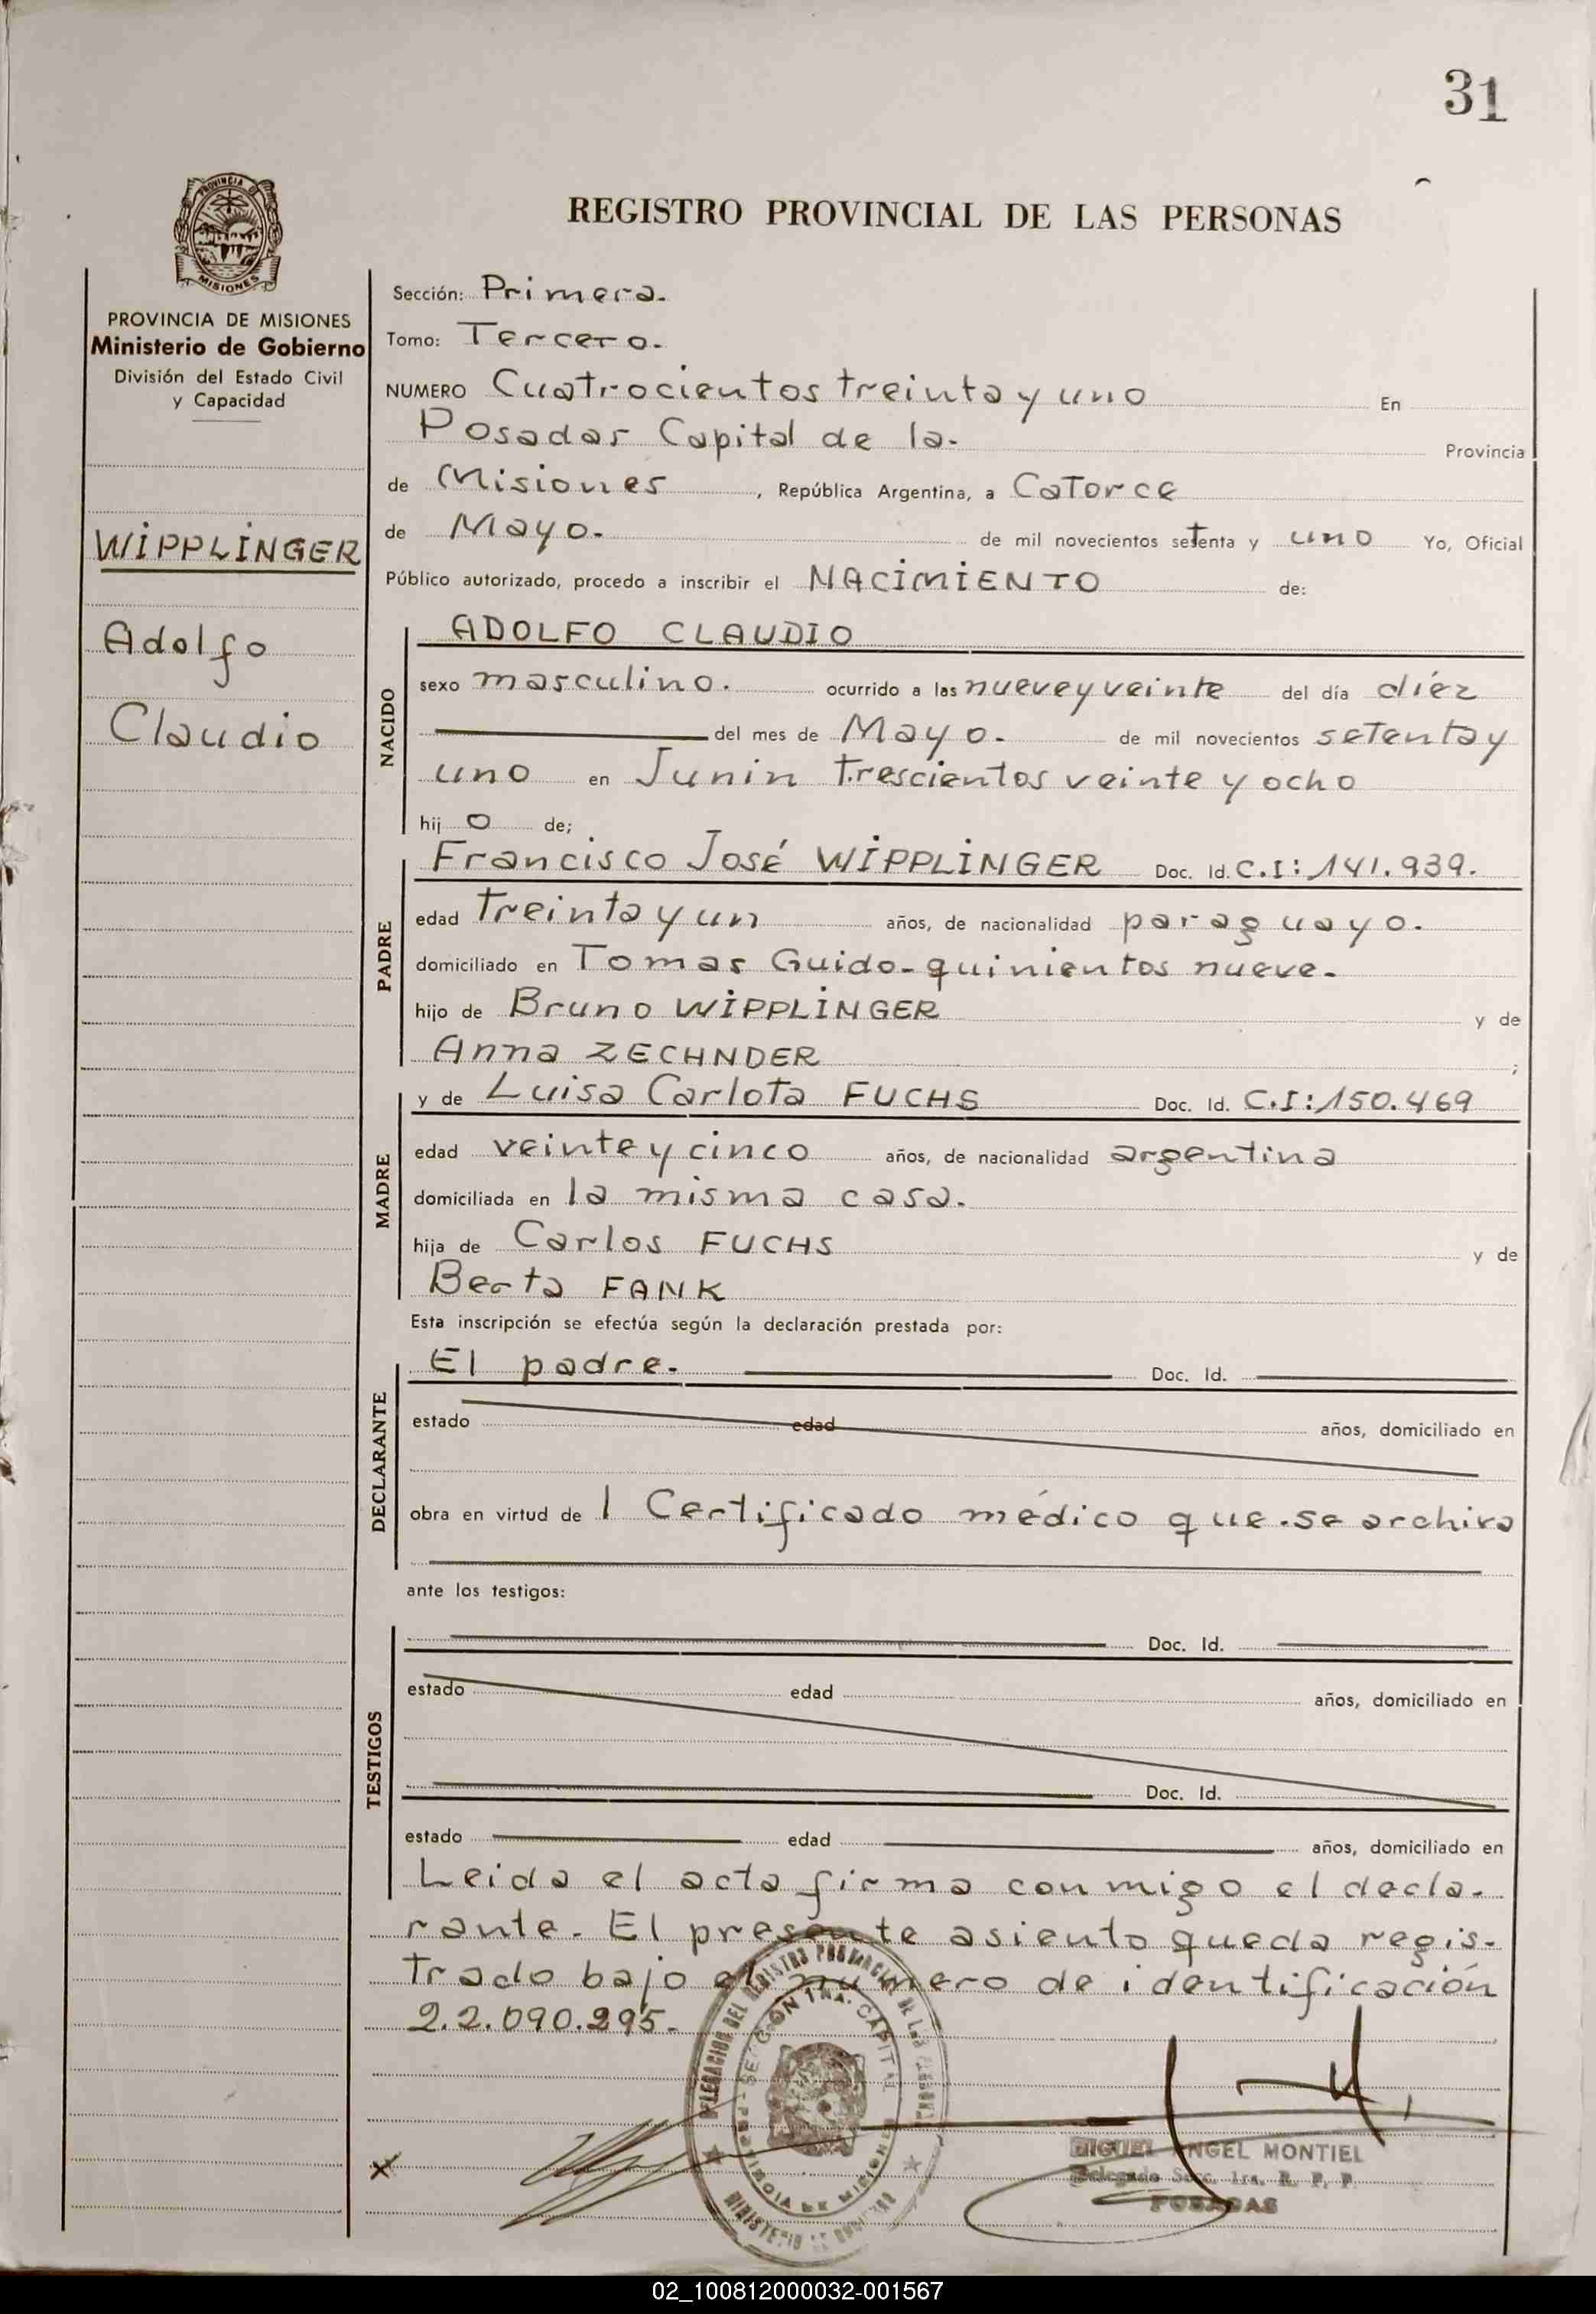 31
PROVINCIA DE
MISIONES
REGISTRO PROVINCIAL DE LAS PERSONAS
PROVINCIA DE MISIONES
Ministerio de Gobierno
División del Estado Civil
y Capacidad
WIPPLINGER
Adolfo
Claudio
Sección: Primera.
Tomo: Tercero.
NUMERO Cuatrocientos treinta y uno En
Posadas Capital de la. Provincia
de Misiones, República Argentina, a Catorce
de Mayo. de mil novecientos setenta y uno Yo, Oficial
Público autorizado, procedo a inscribir el NACIMIENTO de:
NACIDO
ADOLFO CLAUDIO
sexo masculino. ocurrido a las nueve y veinte del día diéz
del mes de Mayo. de mil novecientos setenta y
uno en Junin trescientos veinte y ocho
hij o de;
PADRE
Francisco José WIPPLINGER Doc. Id. C.I: 141.939.
edad treinta y un años, de nacionalidad paraguayo.
domiciliado en Tomas Guido-quinientos nueve.
hijo de Bruno WIPPLINGER y de
Anna ZECHNDER ;
MADRE
y de Luisa Carlota FUCHS Doc. Id. C.I: 150.469
edad veinte y cinco años, de nacionalidad argentina
domiciliada en la misma casa.
hija de Carlos FUCHS y de
Berta FANK
Esta inscripción se efectúa según la declaración prestada por:
DECLARANTE
El padre. Doc. Id.
estado edad años, domiciliado en
obra en virtud de 1 Certificado médico que se archiva
ante los testigos:
TESTIGOS
Doc. Id.
estado edad años, domiciliado en
Doc. Id.
estado edad años, domiciliado en
Leida el acta firma conmigo el decla-
rante. El presente asiento queda regis-
trado bajo el numero de identificación
22.090.295.
DELEGACION DEL REGISTRO PROVINCIAL DE LAS PERSONAS
SECCION 1RA. CAPITAL
PROVINCIA DE MISIONES
MINISTERIO DE GOBIERNO
X
MIGUEL ANGEL MONTIEL
Delegado Secc. 1ra. R. P. P.
POSADAS
02_100812000032-001567